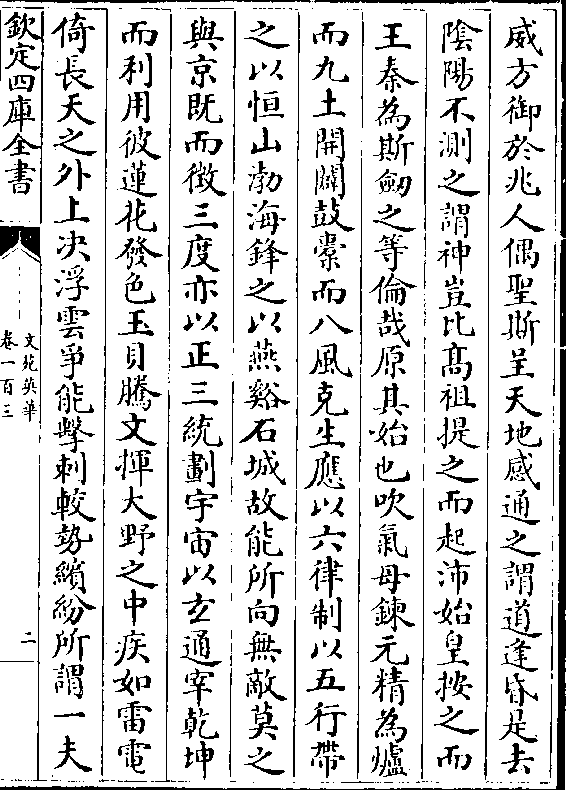 威方御於兆人偶聖斯呈天地感通之謂道逢昏是去
陰陽不測之謂神豈比髙祖提之而起沛始皇按之而
王秦為斯劒之等倫哉原其始也吹氣母錬元精為爐
而九土開闢鼓橐而八風克生應以六律制以五行帶
之以恒山渤海鋒之以燕谿石城故能所向無敵莫之
與京既而徴三度亦以正三統劃宇宙以玄通宰乾坤
而利用彼蓮花發色玉貝騰文揮大野之中疾如雷電
倚長天之外上决浮雲爭能擊刺較勢繽紛所謂一夫
欽定四庫全書
文苑英華
卷一百三
二